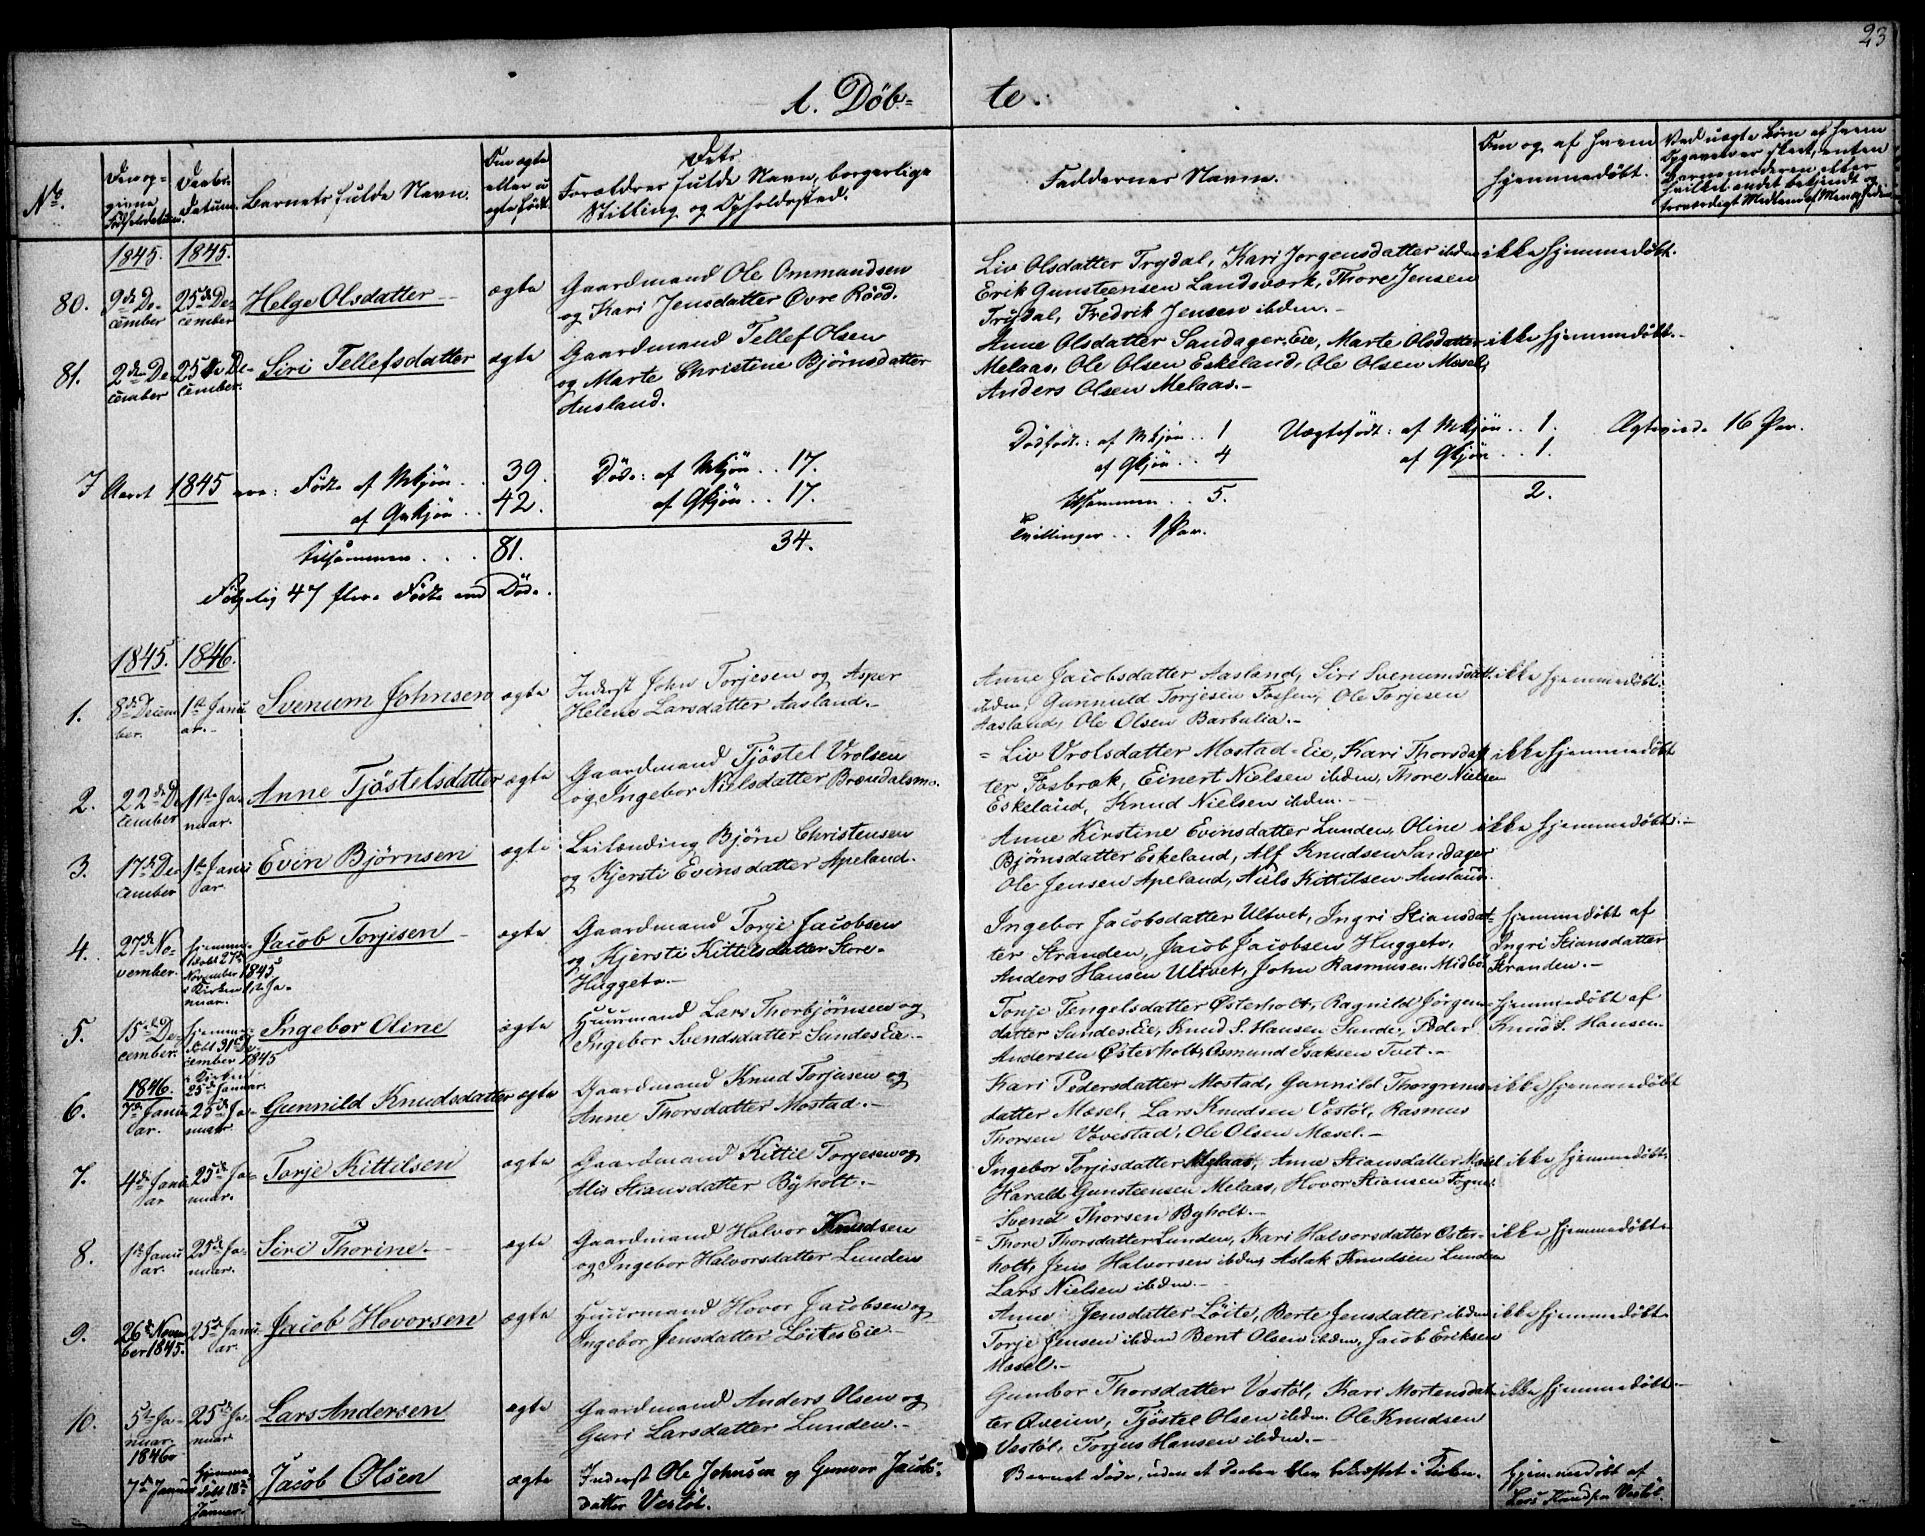 23
1. Døb-
te.
No.
Den op-
givne
Fødselsdatum.
Daabs-
Datum.
Barnets fulde Navn.
Om ægte
eller u-
ægte født.
Forældres fulde Navn, borgerlige
Stilling og Opholdssted.
Faddernes Navn.
Om og af hvem
hjemmedøbt.
1845. 1845.
80. 9de De-
cember
25de De-
cember
Helge Olsdatter
ægte
Gaardmand Ole Ommundsen
og Kari Jensdatter Øvre Røed.
Liv Olsdatter Trydal, Kari Jørgensdatter ibidem
Erik Gunsteensen Landsværk, Thore Jensen
Trydal, Fredrik Jensen ibidem.
ikke hjemmedøbt.
81. 2den De-
cember
25de De-
cember.
Siri Tellefsdatter
ægte
Gaardmand Tellef Olsen
og Marte Christine Bjørnsdatter
Ausland.
Anne Olsdatter Sandager Eie, Marte Olsdatter
Melaas, Ole Olsen Eskeland, Ole Olsen Mæsel,
Anders Olsen Melaas.
ikke hjemmedøbt.
I Aaret 1845 ere: Fødte af Mkjøn . . 39.
af Qvkjøn . . 42.
tilsammen . . . 81.
Følgelig 47 flere Fødte end Døde.
Døde: af Mkjøn . . 17.
af Qkjøn . . 17.
34.
Dødfødte: af Mkjøn . . 1
af Qkjøn . . 4
tilsammen . . 5.
Tvillinger . . 1 Par.
Uægtefødte: af Mkjøn . . 1.
af Qkjøn . . 1.
2.
Ægteviede 16 Par.
1845. 1846.
1. 8de Decem-
ber.
1ste Janu-
ar.
Svenum Johnsen
ægte
Inderst John Torjesen og Asper
Helene Larsdatter Aasland.
Anne Jacobsdatter Aasland, Siri Svenumsdatt.
ibidem, Gunnuld Torjesen Fossen, Ole Torjesen
Aasland, Ole Olsen Barbulia.
ikke hjemmedøbt.
2. 22de De-
cember
11te Ja-
nuar.
Anne Tjøstelsdatter
ægte
Gaardmand Tjøstel Vrolsen
og Ingebor Nielsdatter Brændalsmo.
Liv Vrolsdatter Mostad-Eie, Kari Thorsdat-
ter Fosbræk, Einert Nielsen ibidem, Thore Nielsen
Eskeland, Knud Nielsen ibidem.
ikke hjemmedøbt
3. 17de De-
cember
1ste Janu-
ar.
Evin Bjørnsen
ægte
Leilænding Bjørn Christensen
og Kjersti Evinsdatter Apeland.
Anne Kirstine Evinsdatter Lunden, Oline
Bjørnsdatter Eskeland, Alf Knudsen Sandager
Ole Jensen Apeland, Niels Kittilsen Ausland.
ikke hjemmedøbt.
4. 27de No-
vember.
hjemme-
døbt 27de
November 1845
i Kirken 1ste Ja-
nuar.
Jacob Torjisen
ægte
Gaardmand Torje Jacobsen
og Kjersti Kittilsdatter Store-
Huggeto.
Ingebor Jacobsdatter Ultvet, Ingri Stiansdat-
ter Stranden, Jacob Jacobsen Huggeto,
Anders Hansen Ultvet, John Rasmusen Midbø.
hjemmedøbt af
Ingri Stiansdatter
Stranden.
5. 15de De-
cember.
hjemme-
døbt 31te De-
cember 1845
i Kirken
25de Januar.
Ingebor Oline
ægte
Huusmand Lars Thorbjørnsen og
Ingebor Svendsdatter Sundes Eie.
Tonje Tengelsdatter Østerholt, Ragnild Jørgens-
datter Sundes Eie, Knud S. Hansen Sunde, Peder
Andersen Østerholt, Asmund Isaksen Tvet.
hjemmedøbt af
Knud S. Hansen.
1846.
6. 7de Janu-
ar.
25de Ja-
nuar.
Gunnild Knudsdatter
ægte
Gaardmand Knud Torjusen og
Anne Thorsdatter Mostad.
Kari Pedersdatter Mostad, Gunnild Thorgrims-
datter Mæsel, Lars Knudsen Vestøl, Rasmus
Thorsen Vovestad, Ole Olsen Mæsel.
ikke hjemmedøbt
7. 4de Janu-
ar
25de Ja-
nuar.
Torje Kittilsen
ægte
Gaardmand Kittil Torjesen og
Alis Stiansdatter Byholt.
Ingebor Torjisdatter Melaas, Anne Stiansdatter Mæsel
Harald Gunsteensen Melaas, Hovor Stiansen Togne
Svend Thorsen Byholt.
ikke hjemmedøbt.
8. 1ste Janu-
ar.
25de Ja-
nuar.
Siri Thorine.
ægte
Gaardmand Halvor Knudsen
og Ingebor Halvorsdatter Lunden
Thore Thorsdatter Lunden, Kari Halvorsdatter Øster-
holt, Jens Halvorsen ibidem, Aslak Knudsen Lunden
Lars Nielsen ibidem.
ikke hjemmedøbt
9. 26de Novem-
ber 1845.
25de Janu-
ar.
Jacob Hovorsen
ægte
Huusmand Hovor Jacobsen og
Ingebor Jensdatter Løites Eie.
Anne Jensdatter Løite, Berte Jensdatter ibidem
Torje Jensen ibidem Bent Olsen ibidem, Jacob Eriksen
Mæsel.
ikke hjemmedøbt
10. 5te Ja-
nuar.
25de Ja-
nuar
Lars Andersen
ægte
Gaardmand Anders Olsen og
Guri Larsdatter Lunden.
Gunbor Thorsdatter Vestøl, Kari Mortensdat-
ter Qveim, Tjøstel Olsen ibidem. Ole Knudsen
Vestøl, Torjus Hansen ibidem.
ikke hjemmedøbt.
1846
7de Januar
hjemme-
døbt 18de
Januar.
Jacob Olsen
ægte
Inderst Ole Johnsen og Gunvor Jacobs-
datter Vestøl.
Barnet døde, uden at Daaben blev bekræftet i Kirken.
hjemmedøbt af
Lars Knudsen Vestøl.